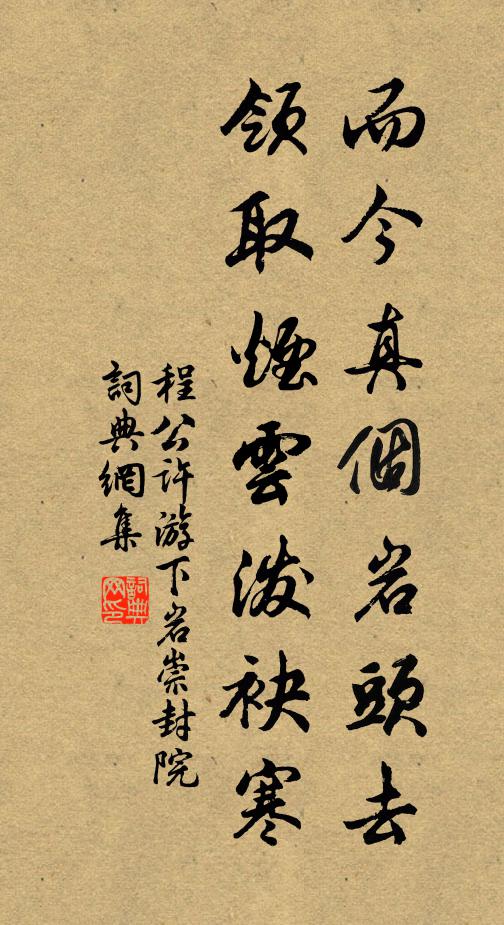 而今真個岩頭去
領取煙雲泼袂寒
程公許游下岩崇封院
詞典網集
詞典网印